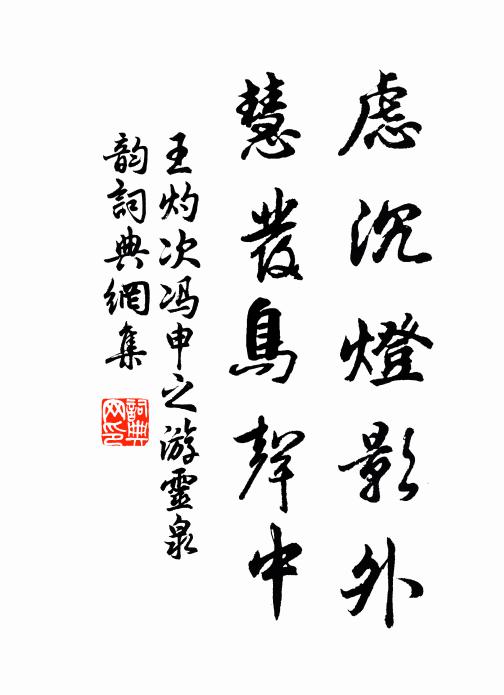 慮沉燈影外
慧發鳥聲中
王灼次冯申之游靈泉
韵詞典網集
詞典网印